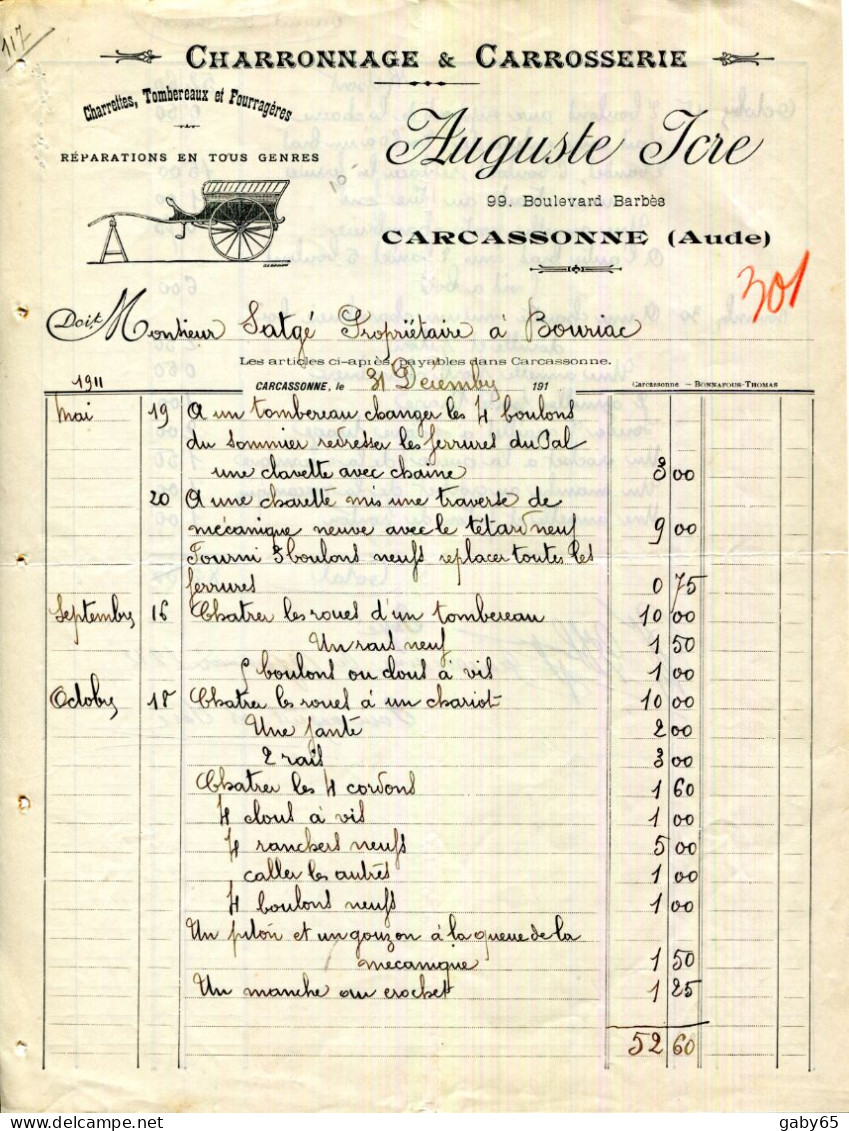 117
CHARRONNAGE & CARROSSERIE
Charrettes, Tombereaux et Fourragères
RÉPARATIONS EN TOUS GENRES
Auguste Icre
99. Boulevard Barbès
CARCASSONNE (Aude)
301
Doit Monsieur Satgé Propriétaire à Bouriac
Les articles ci-après, payables dans Carcassonne.
1911 CARCASSONNE, le 31 Décembre 191 Carcassonne — BONNAFOUS-THOMAS
Mai 19 A un tombereau changer les 4 boulons
du sommier redresser les ferrures du Pal
une clavette avec chaine 3 00
20 A une charette mis une traverse de
mécanique neuve avec le tétard neuf 9 00
Fourni 3 boulons neufs replacer toutes les
ferrures 0 75
Septembre 16 Chatrer les roues d'un tombereau 10 00
Un rais neuf 1 50
5 boulons ou clous à vis 1 00
Octobre 18 Chatrer les roues à un chariot 10 00
Une jante 2 00
2 rais 3 00
Chatrer les 4 cordons 1 60
4 clous à vis 1 00
4 ranchers neufs 5 00
caller les autres 1 00
4 boulons neufs 1 00
Un piton et un gouzon à la queue de la
mecanique 1 50
Un manche au crochet 1 25
52 60
gaby65